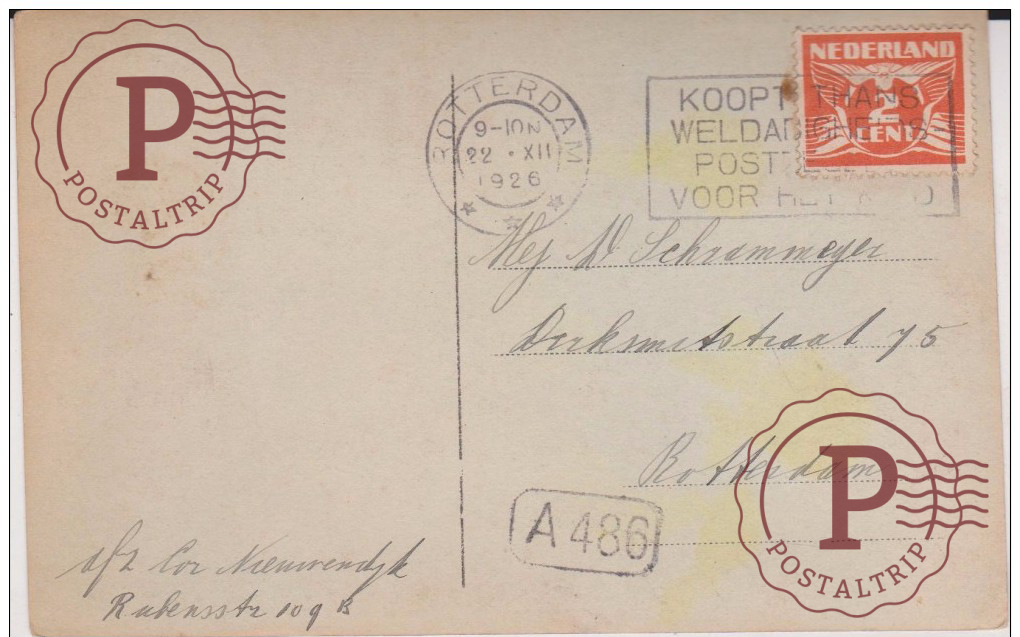 P
POSTALTRIP
ROTTERDAM
9-10 N
22 • XII
1926
KOOPT THANS
WELDADIGHEIDS
POSTZEGELS
VOOR HET KIND
NEDERLAND
2
CENT
Mej W Schrammeyer
Derksmitstraat 75
Rotterdam
A 486
afz Cor Nieuwendyk
Rubensstr 109 B
P
POSTALTRIP